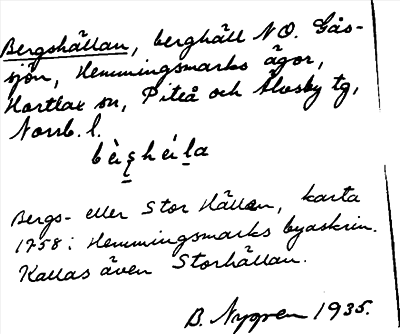 Bergshällan, berghäll NO. Gås-
sjön, Hemmingsmarks ägor,
Hortlax sn, Piteå och Älvsby tg,
Norrb. l.
Bergs- eller Stor Hällen, karta
1758 i Hemmingsmarks byaskrin.
Kallas även Storhällan.
B. Nygren 1935.